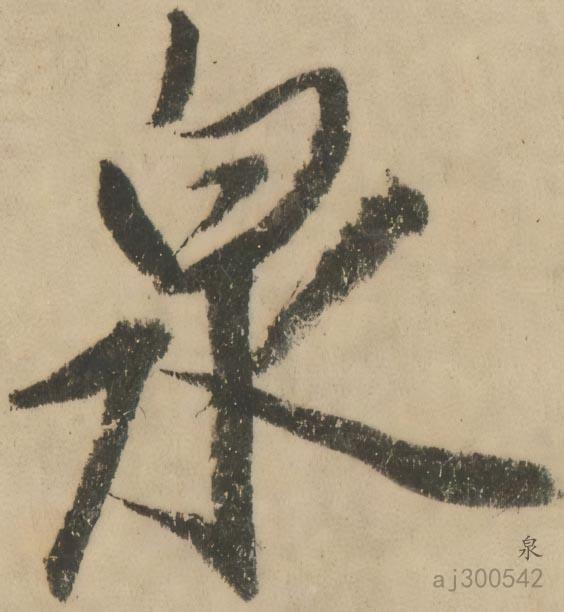 泉
泉
aj300542